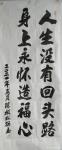 人生没有回头路
身上永怀造福心